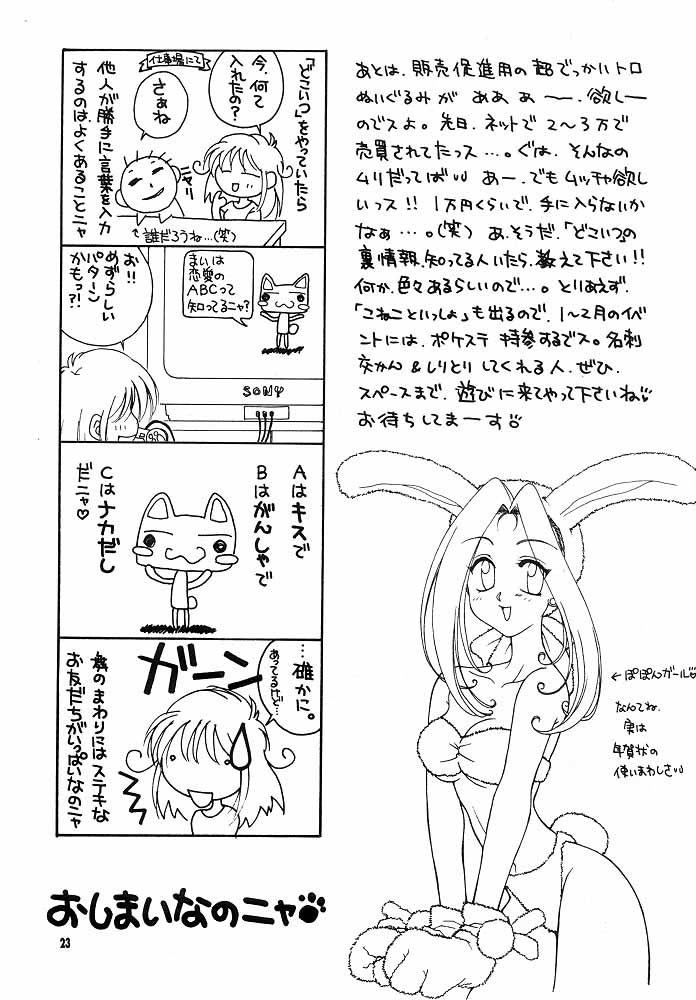 「どこいつ」をやっていたら
今、何て
入れたの？
仕事場にて
さぁね
ニヤリ
他人が勝手に言葉を入力
するのは、よくあることニャ
誰だろうね…(笑)
まいは
恋愛の
ABCって
知ってるニャ？
お!!
めずらしい
パターン
かもっ?!
SONY
Aはキスで
Bはがんしゃで
Cはナカだし
だニャ♡
…確かに。
あってるけど…
ガーン
僕のまわりにはステキな
お友だちがいっぱいなのニャ
おしまいなのニャ
23
あとは、販売促進用の超でっかいトロ
ぬいぐるみが ああ ぁ 〜、欲しー
のでスよ。先日、ネットで 2〜3万で
売買されてたっス…。ぐは、そんなの
ムリだってばいい あー、でもムッチャ欲し
いっス!! 1万円くらいで、手に入らないか
なぁ…。(笑) あ、そうだ、「どこいつ」の
裏情報、知ってる人いたら、教えて下さい!!
何か、色々あるらしいので…。とりあえず、
「こねこといっしょ」も出るので、1〜2月のイベ
ントには、ポケステ 持参するでス。名刺
交かん&しりとり してくれる人、ぜひ、
スペースまで、遊びに来てやって下さいね♡
お待ちしてまーす
←ぽぽんガール♡
なんてね、
実は
年賀状の
使いまわしさ